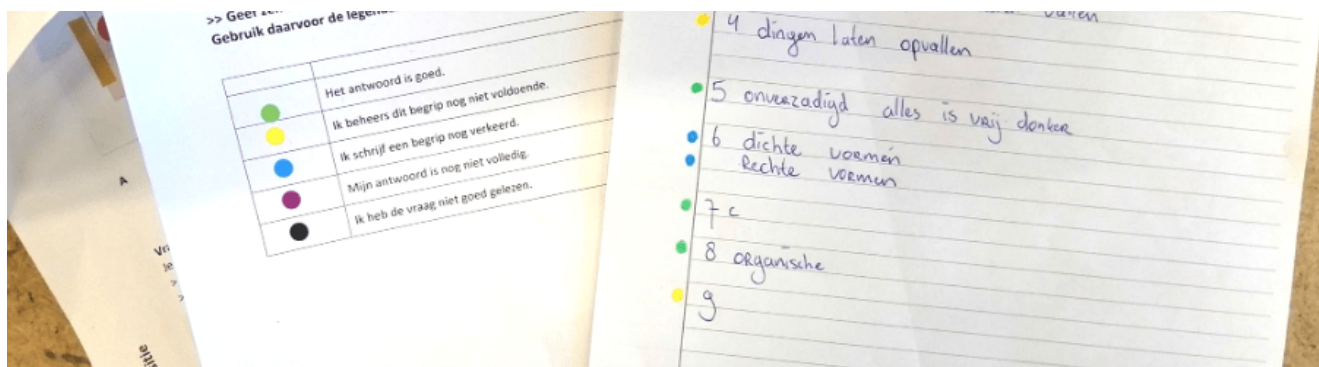 >> Geef
Gebruik daarvoor de
Het antwoord is goed.
Ik beheers dit begrip nog niet voldoende.
Ik schrijf een begrip nog verkeerd.
Mijn antwoord is nog niet volledig.
Ik heb de vraag niet goed gelezen.
A
4 dingen laten opvallen
5 onverzadigd alles is vrij donker
6 dichte vormen
Rechte vormen
7 c
8 organische
9